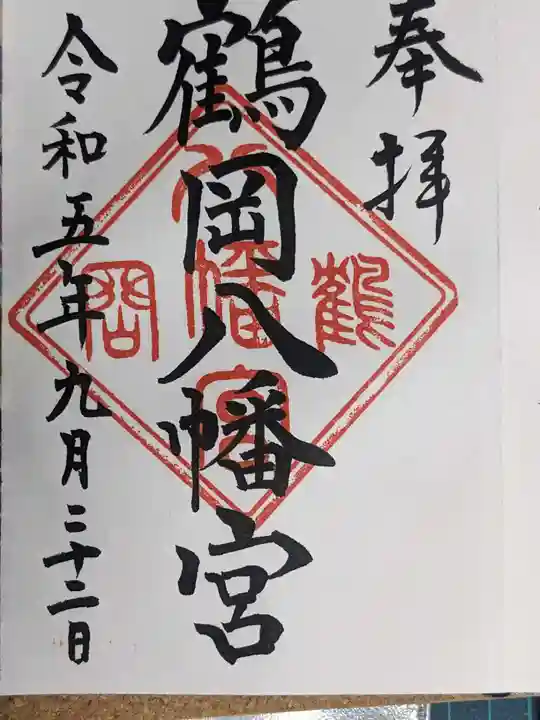 奉拝
鶴岡八幡宮
令和五年九月二十二日
鶴
岡
八幡宮